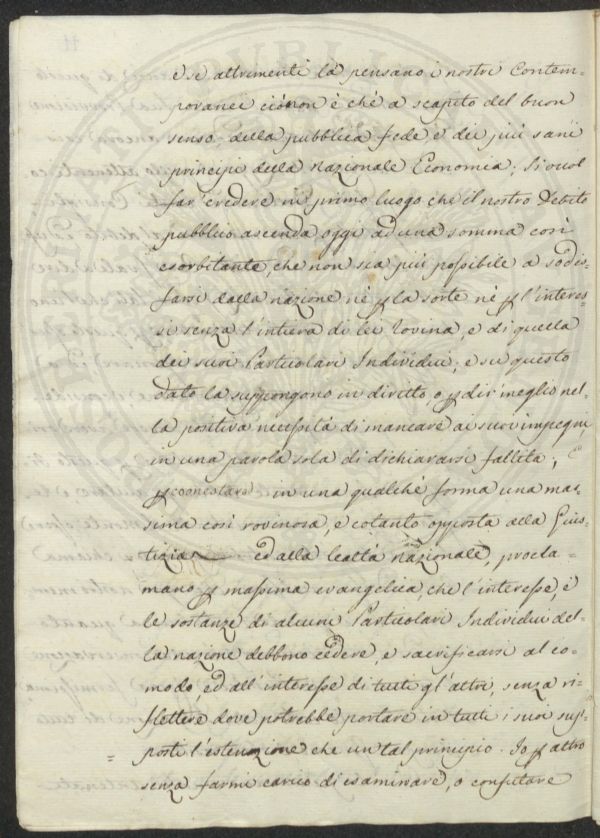 e se altrimenti la pensano i nostri Contem=
poranei ciò non è ché a scapito del buon
senso della pubblica fede, e dei più sani
principj della Nazionale Economia; Si vuol
far credere in primo luogo che il nostro Debito
pubblico ascenda oggi ad una somma così
esorbitante, che non sia più possibile a sodis-
farsi dalla nazione nè p la sorte nè p l'interes-
si senza l'intiera di lei rovina, e di quella
dei suoi Particolari Individui; e su questo
dato la suppongono in diritto, o p dir meglio nel-
la positiva necessità di mancare ai suoi impegni,
in una parola sola di dichiararsi fallita; E
p coonestare in una qualché forma una mas-
sima così rovinosa, e cotanto opposta alla Gius-
tizia ed alla lealtà nazionale, procla-
mano p massima evangelica, che l'interesse, e
le sostanze di alcuni Particolari Individui del-
la nazione debbono cedere, e sacrificarsi al co-
modo ed all'interesse di tutti gl'altri, senza ri-
flettere dove potrebbe portare in tutti i suoi sup-
posti l'estenzione che un tal principio. Io p altro
senza farmi carico di esaminare, o confutare